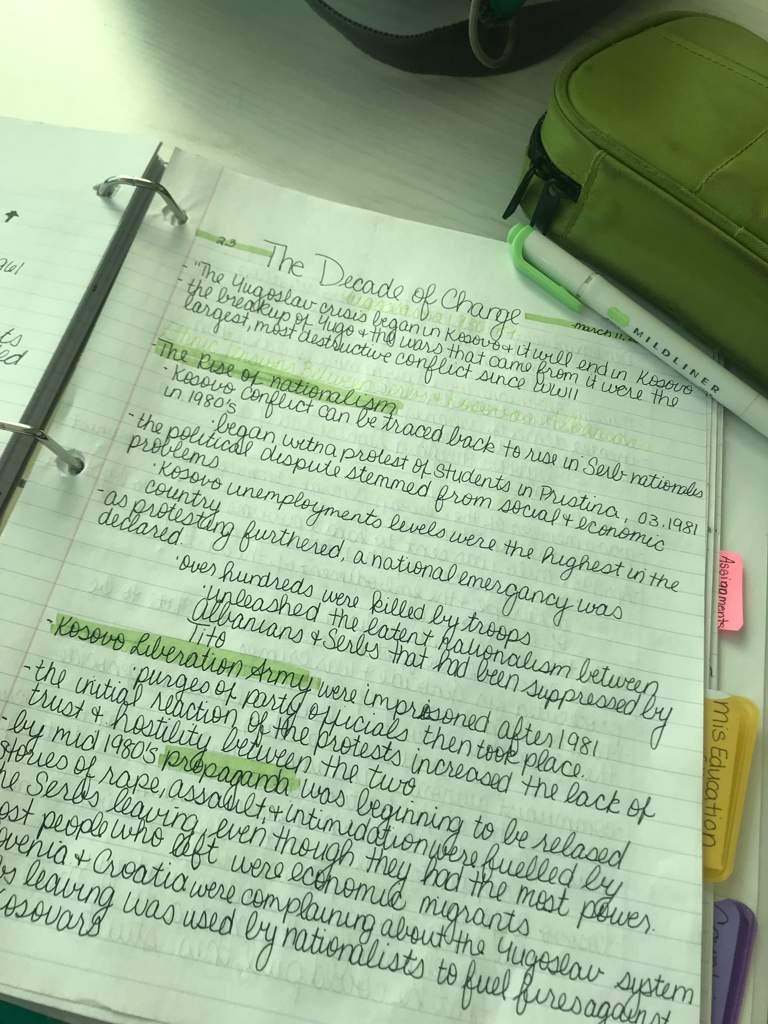 23 The Decade of Change
march 11,
- "The Yugoslav crisis began in Kosovo & it will end in Kosovo
- the breakup of Yugo & the wars that came from it were the
largest, most destructive conflict since WWII
- The Rise of nationalism
· Kosovo conflict can be traced back to rise in Serb nationalis
in 1980's
· began with a protest of students in Pristina, 03.1981
- the political dispute stemmed from social & economic
problems
· Kosovo unemployments levels were the highest in the
country
- as protesting furthered, a national emergancy was
declared
· over hundreds were killed by troops
· unleashed the latent nationalism between
Albanians & Serbs that had been suppressed by
Tito
- Kosovo Liberation Army were imprisoned after 1981
· purges of party officials then took place.
- the initial reaction of the protests increased the lack of
trust & hostility between the two
- by mid 1980's propaganda was beginning to be relased
stories of rape, assault, & intimidation were fuelled by
he Serbs leaving, even though they had the most power.
ost people who left were economic migrants
ovenia & Croatia were complaining about the Yugoslav system
bs leaving was used by nationalists to fuel fires against
osovars
MILDLINER
Assignments
Mis Education